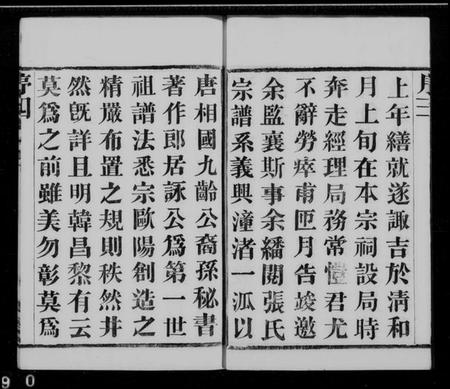 序三
上年繕就遂諏吉於清和
月上旬在本宗祠設局時
奔走經理局務常愷君尤
不辭勞瘁甫匝月告竣邀
余監襄斯事余繙閱張氏
宗譜系義興潼渚一派以
唐相國九齡公裔孫秘書
著作郎居詠公爲第一世
祖譜法悉宗歐陽創造之
精嚴布置之規則秩然井
然旣詳且明韓昌黎有云
莫爲之前雖美勿彰莫爲
序四
9 0